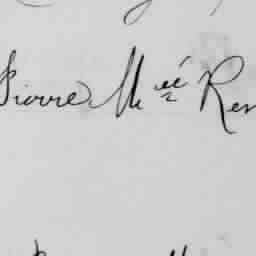 Pierre M^ée Ren